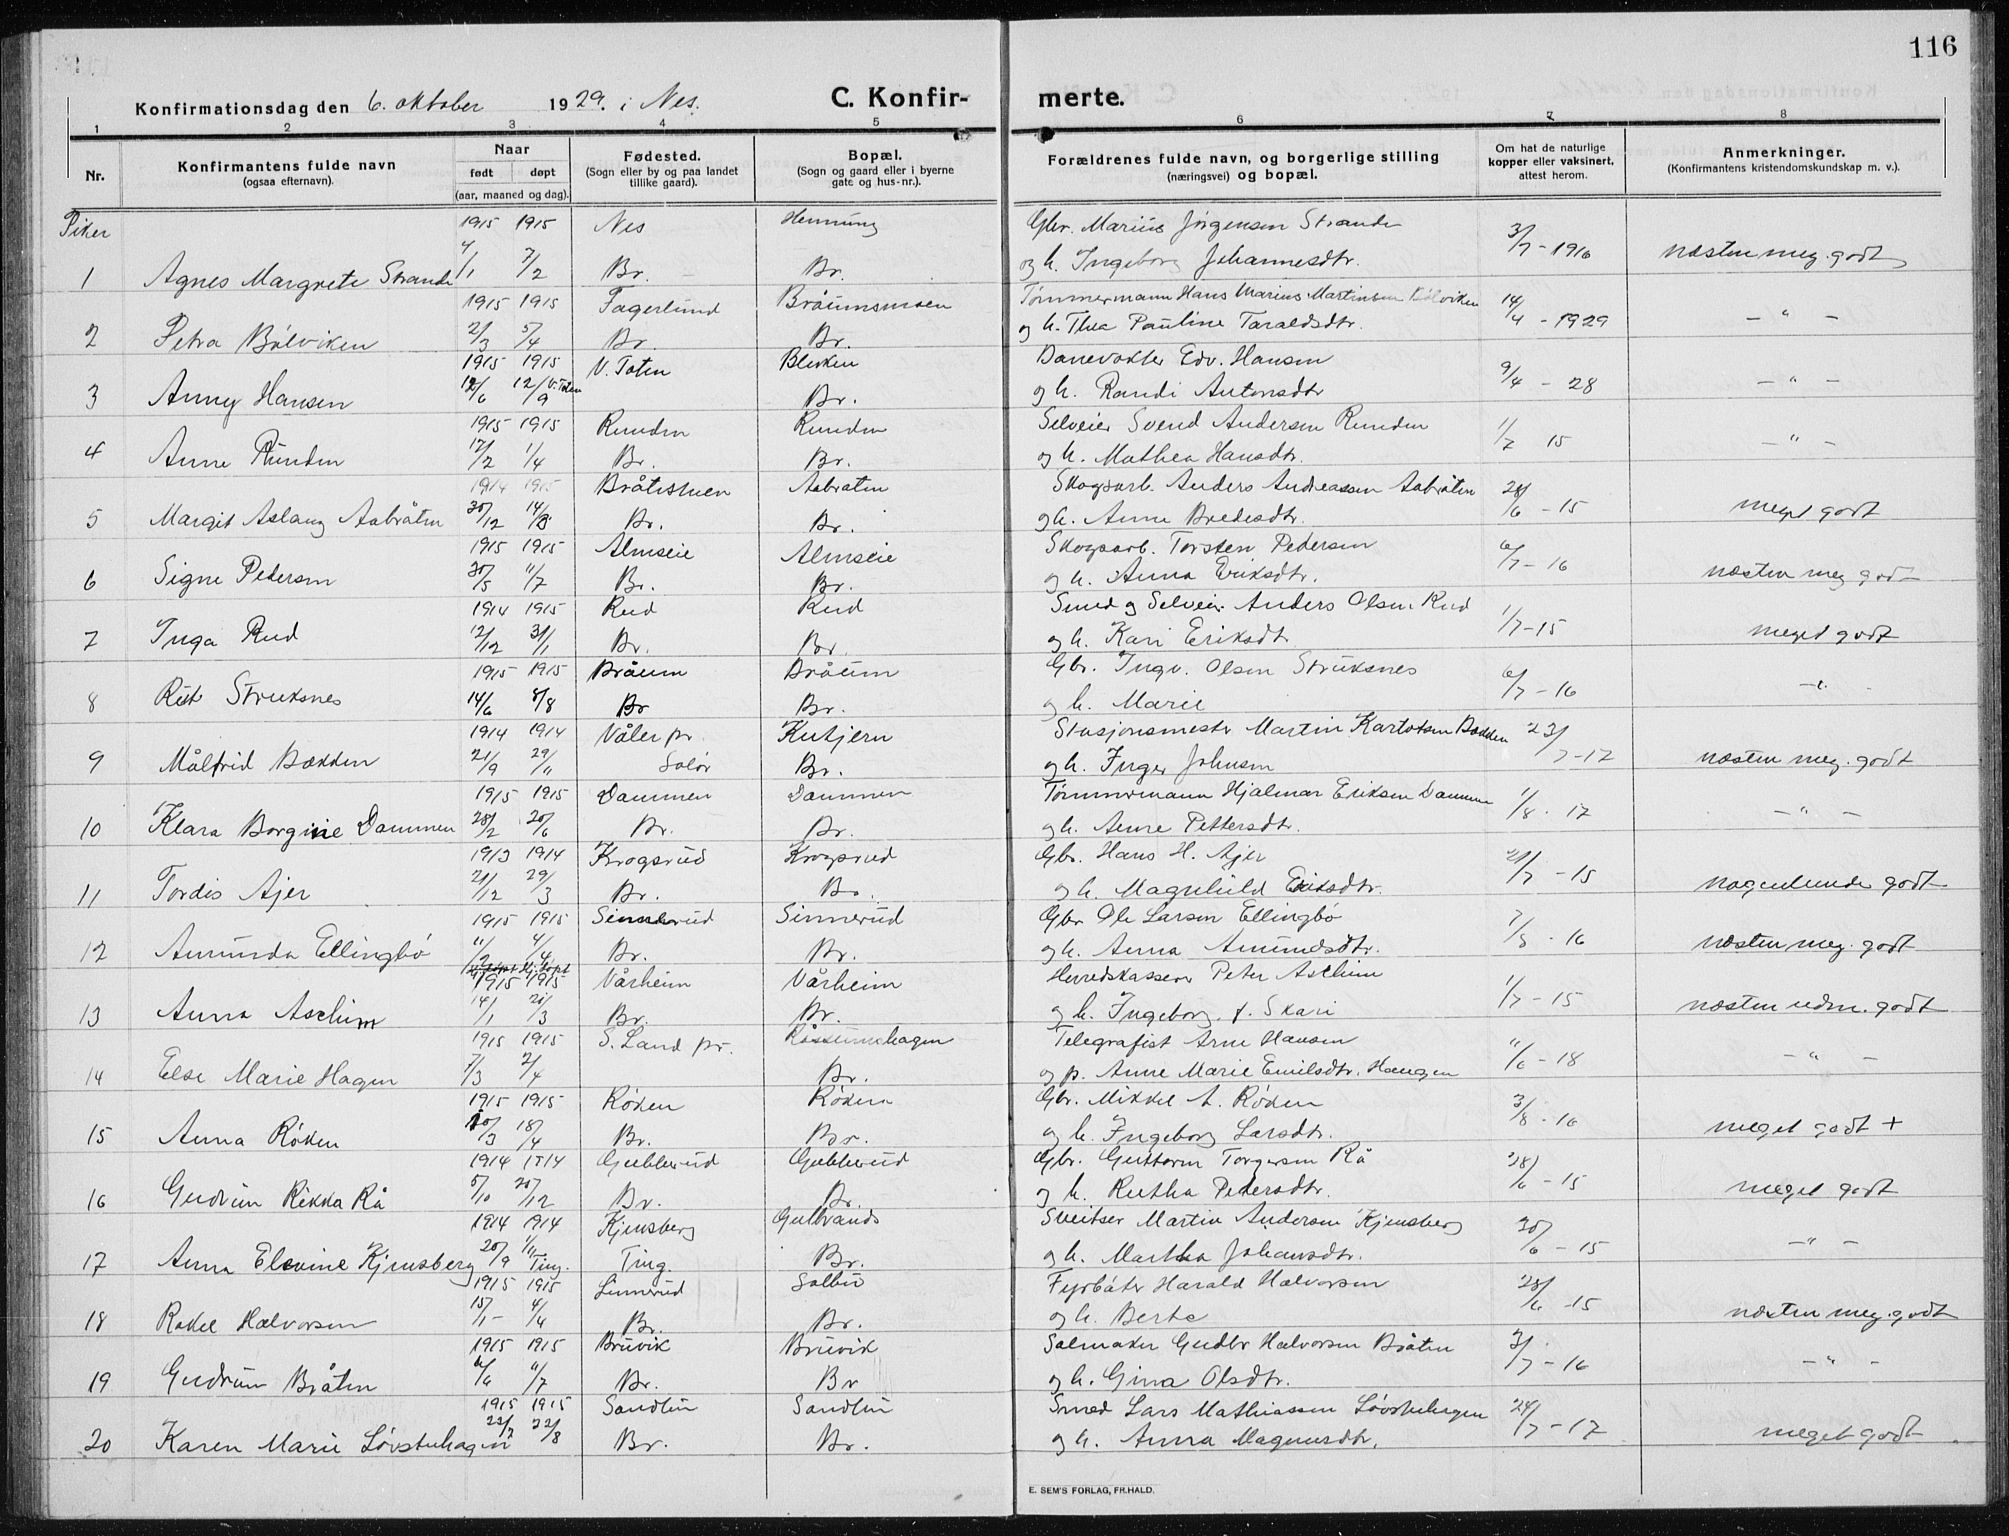 116
Konfirmationsdag den 6. oktober 1929. i Nes. C. Konfir- merte.
1 2 3 4 5 6 7 8
Nr. Konfirmantens fulde navn (ogsaa efternavn). Naar født døpt (aar, maaned og dag). Fødested. (Sogn eller by og paa landet tillike gaard). Bopæl. (Sogn og gaard eller i byerne gate og hus-nr.). Forældrenes fulde navn, og borgerlige stilling (næringsvei) og bopæl. Om hat de naturlige kopper eller vaksinert, attest herom. Anmerkninger. (Konfirmantens kristendomskundskap m. v.).
Piker 1915 1915 Nes Gbr. Marius Jørgensen Strande
1 Agnes Margrete Strande 4/1 7/2 Br. Br. og h. Ingeborg Johannesdtr. 3/7 - 1916 næsten meg. godt
1915 1915 Fagerlund Bråumsmoen Tømmermann Hans Marius Martinsen Bølviken
2 Petra Bølviken 2/3 5/4 Br. Br. og h. Thea Pauline Taraldsdtr. 14/4 - 1929 - " -
1915 1915 V. Toten Blevken Banevokter Edv. Hansen
3 Anny Hansen 12/6 12/9 V. Toten Br. og h. Randi Antonsdtr 9/4 - 28 - " -
1915 1915 Runden Runden Selveier Svend Andersen Runden
4 Anne Runden 17/2 1/4 Br. Br. og h. Mathea Hansdtr. 1/7 15 - " -
1914 1915 Bråtestuen Aabråten Skogsarb. Anders Andreassen Aabråten
5 Margit Aslaug Aabråten 30/12 14/3 Br. Br. og h. Anne Bredesdtr. 28/6 - 15 meget godt
1915 1915 Almseie Almseie Skogsarb. Torsten Pedersen
6 Signe Pedersen 30/5 11/7 Br. Br. og h. Anna Eriksdtr. 6/7 - 16 næsten meg godt
1914 1915 Rud Rud Smed og Selveier Anders Olsen Rud
7 Inga Rud 12/12 31/1 Br. Br. og h. Kari Eriksdtr. 1/7 - 15 meget godt
1915 1915 Bråum Bråum Gbr. Ingv. Olsen Struksnes
8 Rut Struksnes 14/6 8/8 Br Br. og h. Marie 6/7 - 16 - " -
1914 1914 Våler pr. Kutjern Stasjonsmestr Martin Karlotsen Bækken
9 Målfrid Bækken 21/9 29/11 Solør Br. og h. Inger Johnsen 23/7 - 17 næsten meg. godt
1915 1915 Dammen Dammen Tømmermann Hjalmar Eriksen Dammen
10 Klara Borgine Dammen 28/2 20/6 Br. Br. og h. Anne Pettersdtr. 1/8 - 17 - " -
1913 1914 Krogsrud Krogsrud Gbr. Hans H. Ajer
11 Tordis Ajer 21/12 29/3 Br. Br. og h. Magnhild Eriksdtr. 21/7 - 15 nogenlunde godt
1915 1915 Sinnerud Sinnerud Gbr Ole Larsen Ellingbø
12 Amunda Ellingbø 11/2 4/4 Br. Br. og h. Anna Amundsdtr. 16 næsten meg. godt
1915 1915 Vårheim Vårheim Herredskasserer Peter Aschim
13 Anna Aschim 14/1 21/3 Br. Br. og h. Ingeborg f. Skari 1/7 - 15 næsten udm. godt
1915 1915 S. Land pr. Røssumshagen Telegrafist Arne Hansen
14 Else Marie Hagen 7/3 2/4 Br. og p. Anne Marie Emilsdtr. Haugen 11/6 - 18 - " -
1915 1915 Røken Røken Gbr. Mikkel A. Røken
15 Anna Røken 10/3 18/4 Br. Br. og h. Ingeborg Larsdtr. 3/8 - 16 meget godt +
1914 1914 Gublerud Gublerud Gbr. Guttorm Torgersen Rå
16 Gudrun Rikka Rå 5/10 20/12 Br. Br. og h. Rutha Pedersdtr. 28/6 - 15 meget godt
1914 1914 Kjensberg Gulbrands Sveitser Martin Andersen Kjensberg
17 Anna Elevine Kjensberg 20/9 1/11 Ting. Ting. Br. og h. Martha Johansdtr. 30/6 - 15 - " -
1915 1915 Linnerud Solbu Fyrbøter Harald Halvorsen
18 Rakel Halvorsen 15/1 4/4 Br. Br. og h. Berte 28/6 - 15 næsten meg. godt
1915 1915 Bruvik Bruvik Salmaker Gudbr Halvorsen Bråten
19 Gudrun Bråten 6/6 11/7 Br. Br og h. Gina Olsdtr. 3/7 - 16 - " -
1915 1915 Sandlun Sandlun Smed Lars Mathiassen Løvstuhagen
20 Karen Marie Løvstuhagen 22/7 22/8 Br. Br. og h. Anna Magnusdtr. 24/7 - 17 meget godt
E. SEM'S FORLAG, FR.HALD.